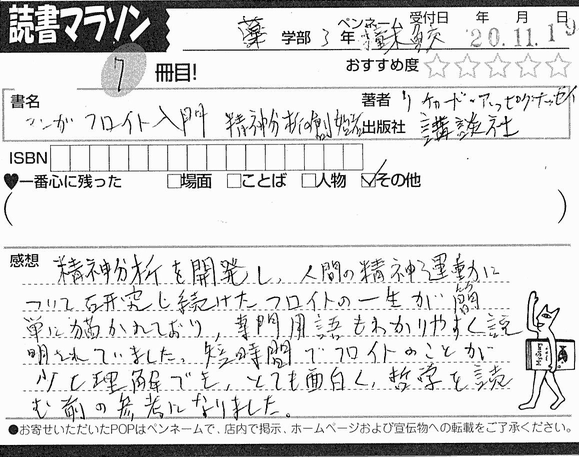 読書マラソン
薬 学部 3年 ペンネーム 受付日 年 月 日
20.11.19
7 冊目! おすすめ度 ☆☆☆☆☆
書名 マンガ フロイト入門 精神分析の創始者
著者 リチャード・アッピグナネッセイ
出版社 講談社
ISBN
♥一番心に残った □場面 □ことば □人物 ☑その他
( )
感想 精神分析を開発し、人間の精神運動に
ついて研究し続けたフロイトの一生が簡
単に描かれており、専門用語もわかりやすく説
明されていました。短時間でフロイトのことが
少し理解でき、とても面白く、哲学を読
む前の参考になりました。
●お寄せいただいたPOPはペンネームで、店内で掲示、ホームページおよび宣伝物への転載をご了承ください。